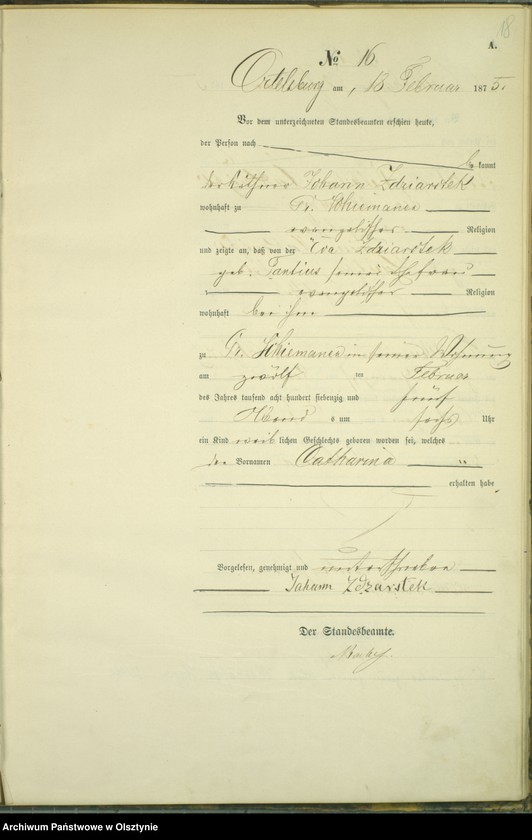 18
A.
No 16
Ortelsburg am, 13 Februar 1875.
Vor dem unterzeichneten Standesbeamten erschien heute,
der Person nach bekannt
Johann Zdziarstek
wohnhaft zu Gr. Schiemanen
evangelischer Religion
und zeigte an, daß von der Eva Zdziarstek
geb. seiner Ehefrau
evangelischer Religion
wohnhaft bei ihm
zu Gr. Schiemanen in seiner Wohnung
am zwölf ten Februar
des Jahres tausend acht hundert siebenzig und fünf
Abend s um sechs Uhr
ein Kind weiblichen Geschlechts geboren worden sei, welches
den Vornamen Catharina
erhalten habe
Vorgelesen, genehmigt und unterschrieben
Johann Zdzarstek
Der Standesbeamte.
Archiwum Państwowe w Olsztynie